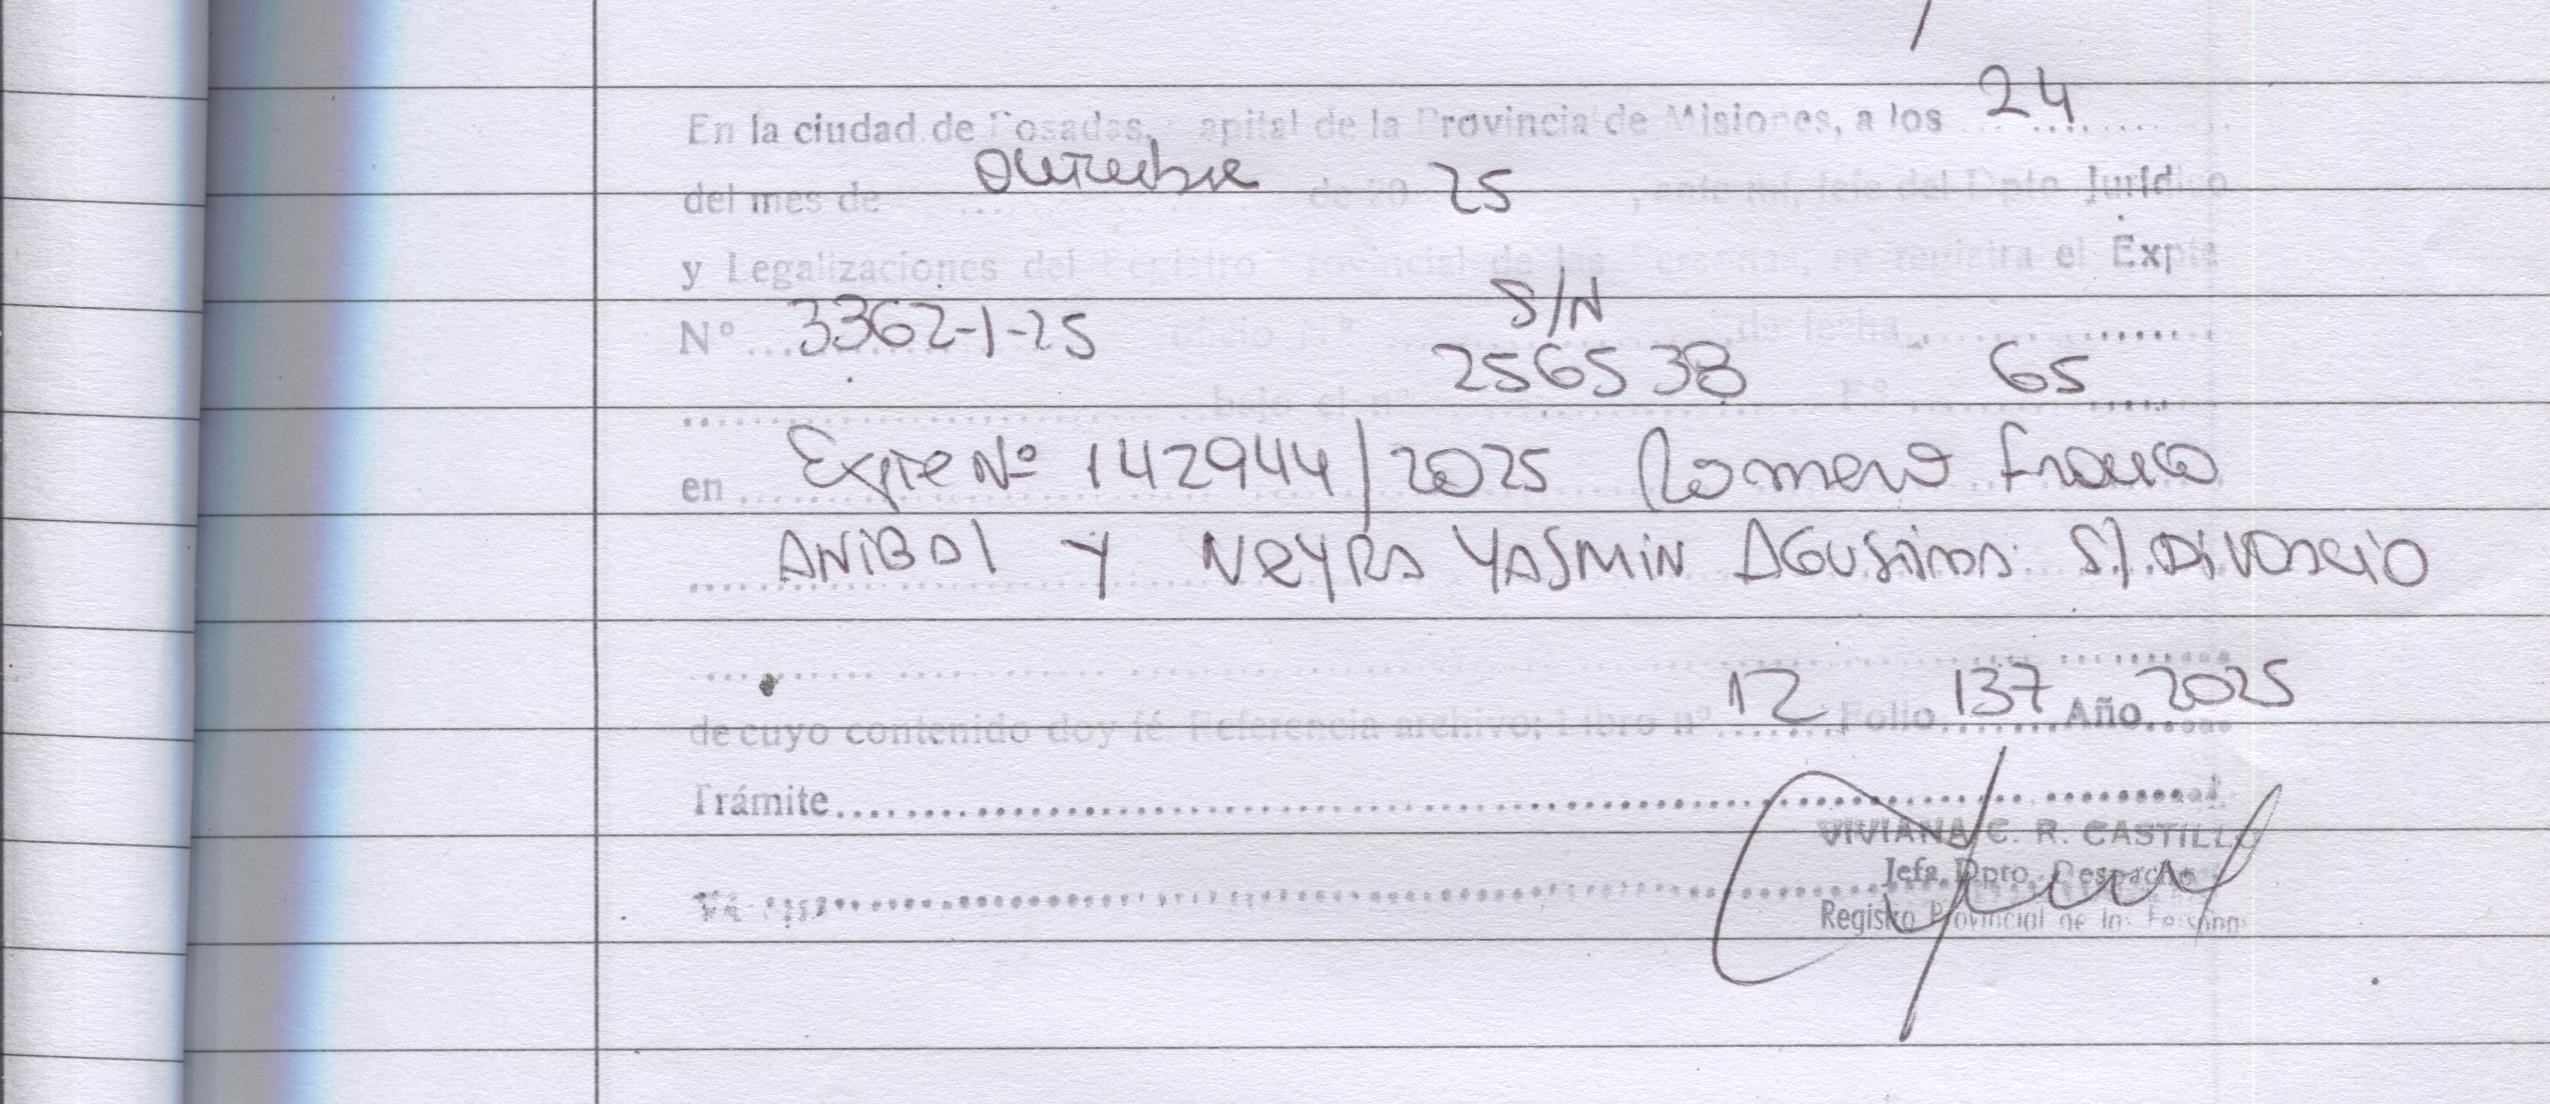 En la ciudad de Posadas, Capital de la Provincia de Misiones, a los 24
del mes de Octubre de 20 25, ante mí, Jefe del Dpto. Jurídico
y Legalizaciones del Registro Provincial de las Personas, se registra el Expte
N° 3362-1-25 Oficio N° S/N de fecha
bajo el n° 256538 F° 65
en Expte Nº 142944/2025 Romero Franco
ANIBAL Y NEYRA YASMIN AGUSTINA S/ DIVORCIO
de cuyo contenido doy fé. Referencia archivo: Libro n° 12 Folio 137 Año 2025
Trámite
VIVIANA C. R. CASTILLO
Jefa Dpto. Despacho
Registro Provincial de las Personas